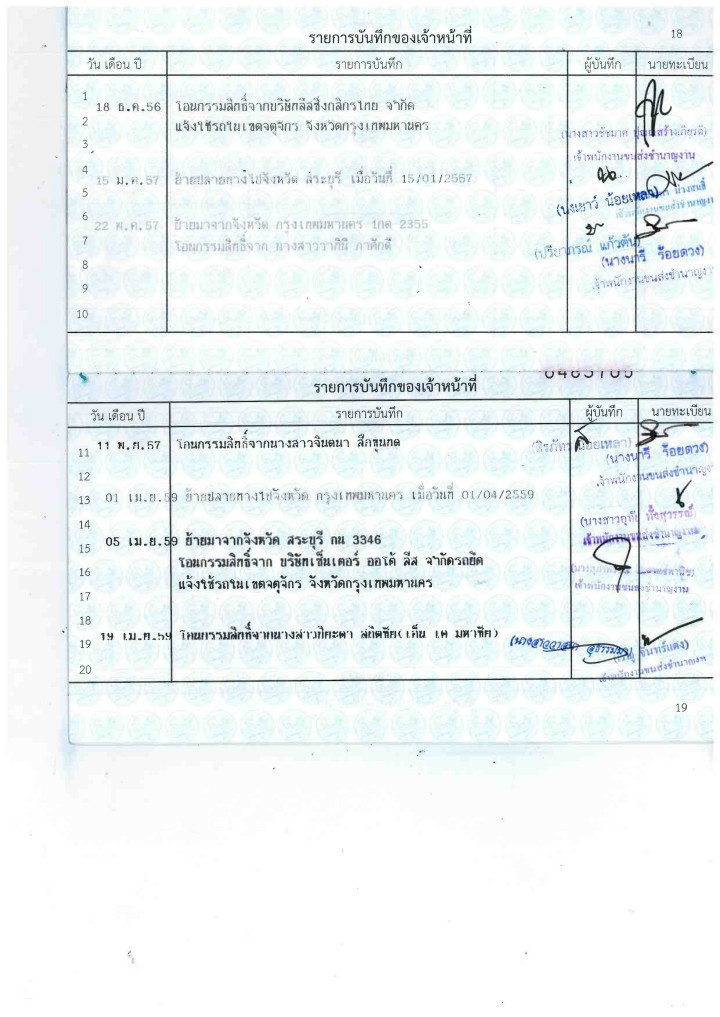 รายการบันทึกของเจ้าหน้าที่ 18
วัน เดือน ปี รายการบันทึก ผู้บันทึก นายทะเบียน
1
18 ธ.ค.56 โอนกรรมสิทธิ์จากบริษัทลีสซิ่งกสิกรไทย จำกัด
2
แจ้งใช้รถในเขตจตุจักร จังหวัดกรุงเทพมหานคร
3
เจ้าพนักงานขนส่งชำนาญงาน
4
15 ม.ค.57 ย้ายปลายทางไปจังหวัด สระบุรี เมื่อวันที่ 15/01/2557
5
(นงเยาว์ น้อยเหลา)
6
22 พ.ค.57 ย้ายมาจากจังหวัด กรุงเทพมหานคร 1กด 2355
7
โอนกรรมสิทธิ์จาก นางสาววากินี ภาศักดี
(ปริยาภรณ์ แก้วตัน) (นางนารี ร้อยดวง)
8
เจ้าพนักงานขนส่งชำนาญงาน
9
10
รายการบันทึกของเจ้าหน้าที่
วัน เดือน ปี รายการบันทึก ผู้บันทึก นายทะเบียน
11
11 พ.ย.57 โอนกรรมสิทธิ์จากนางสาวจินตนา
(นางนารี ร้อยดวง)
12
เจ้าพนักงานขนส่งชำนาญงาน
13
01 เม.ย.59 ย้ายปลายทางไปจังหวัด กรุงเทพมหานคร เมื่อวันที่ 01/04/2559
14
เจ้าพนักงานขนส่งชำนาญงาน
15
05 เม.ย.59 ย้ายมาจากจังหวัด สระบุรี กน 3346
16
โอนกรรมสิทธิ์จาก บริษัทเซ็นเตอร์ ออโต้ ลีส จำกัดรถยึด
17
แจ้งใช้รถในเขตจตุจักร จังหวัดกรุงเทพมหานคร
เจ้าพนักงานขนส่งชำนาญงาน
18
19 เม.ย.59 โอนกรรมสิทธิ์จากนางสาว
19
จันทร์แดง)
20
เจ้าพนักงานขนส่งชำนาญงาน
19